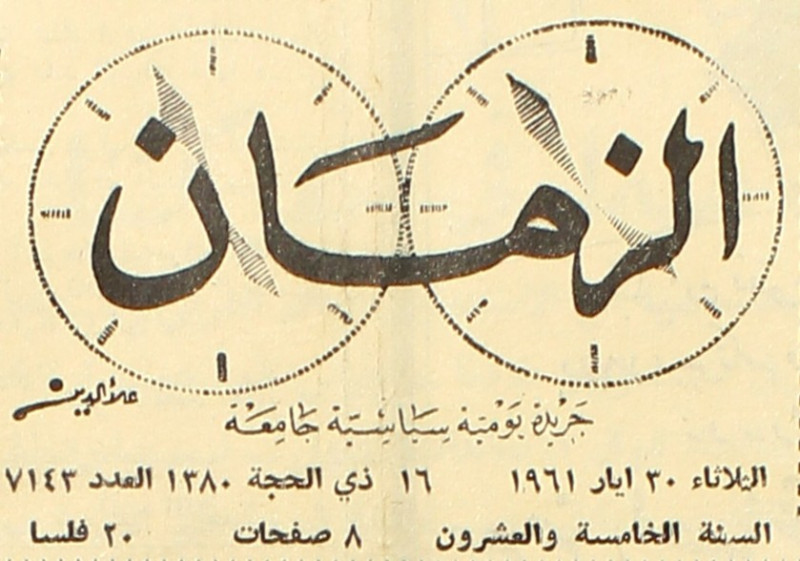 الزمان
علاء الدين
جريدة يومية سياسية جامعة
الثلاثاء ٣٠ ايار ١٩٦١ ١٦ ذي الحجة ١٣٨٠ العدد ٧١٤٣
السنة الخامسة والعشرون ٨ صفحات ٢٠ فلسا